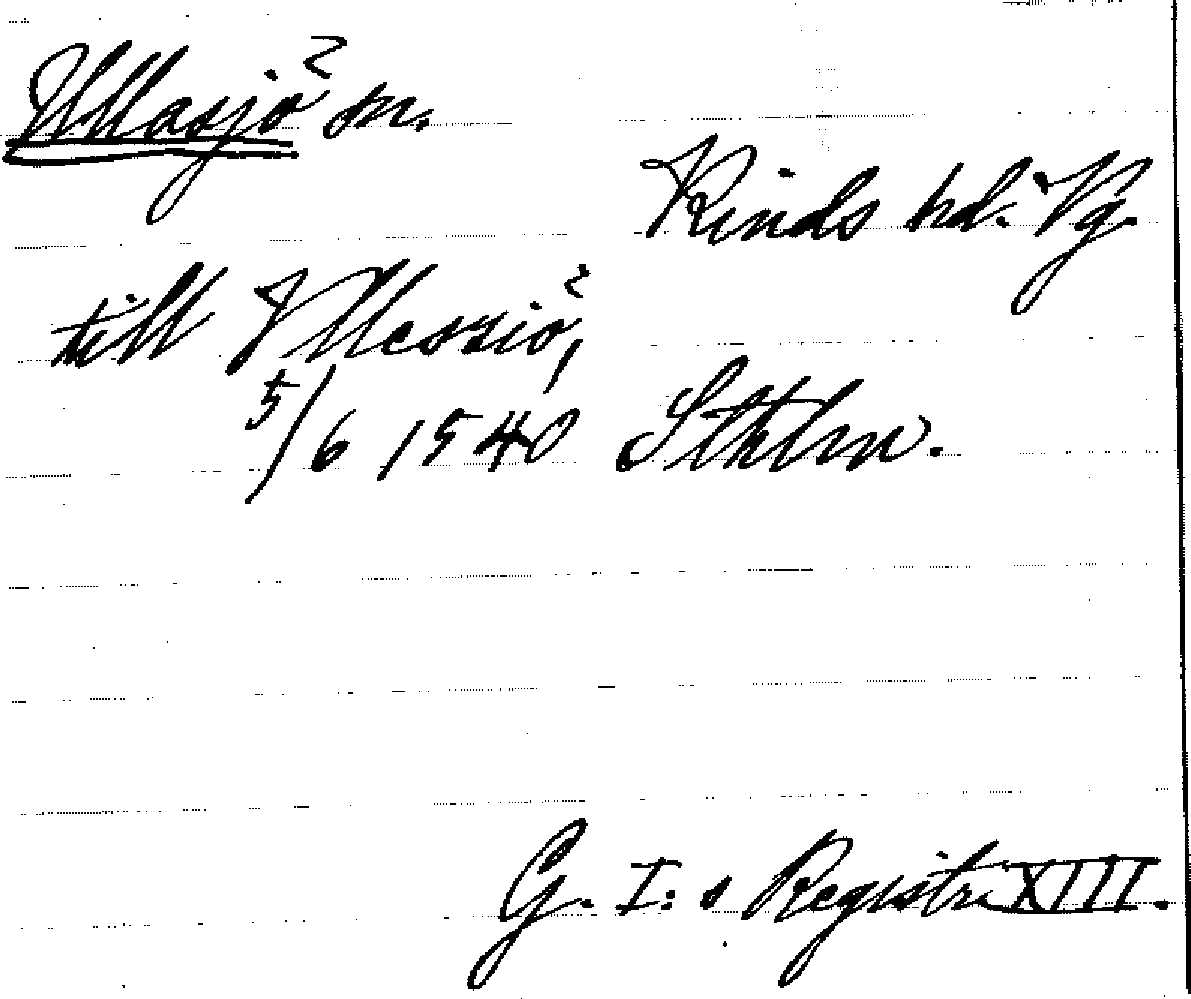 Ullasjö² sn.
Kinds hd. Vg.
till Vllessiö²,
5/6 1540 Sthlm.
G. I:s Registr. XIII.